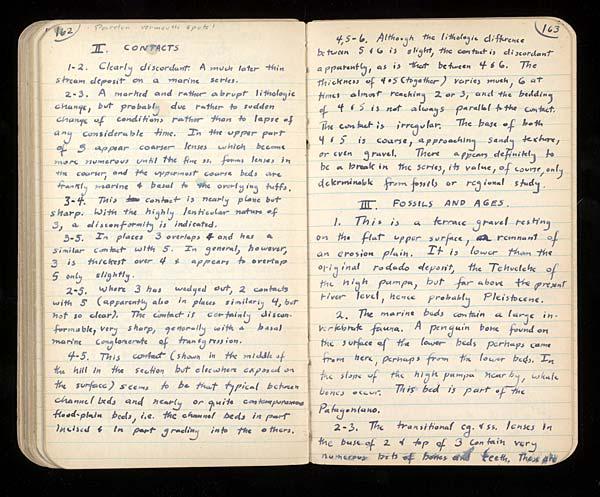 162
vermouth spots!
II. CONTACTS
1-2. Clearly discordant. A much later thin
stream deposit on a marine series.
2-3. A marked and rather abrupt lithologic
change, but probably due rather to sudden
change of conditions rather than to lapse of
any considerable time. In the upper part
of 3 appear coarser lenses which become
more numerous until the fine ss. forms lenses in
the coarser, and the uppermost coarse beds are
frankly marine & basal to the overlying tuffs.
3-4. This contact is nearly plane but
sharp. With the highly lenticular nature of
3, a disconformity is indicated.
3-5. In places 3 overlaps 4 and has a
similar contact with 5. In general, however,
3 is thickest over 4 & appears to overlap
5 only slightly.
2-5. Where 3 has wedged out, 2 contacts
with 5 (apparently also in places similarly 4, but
not so clear). The contact is certainly discon-
formable, very sharp, generally with a basal
marine conglomerate of transgression.
4-5. This contact (shown in the middle of
the hill in the section but elsewhere exposed on
the surface) seems to be that typical between
channel beds and nearly or quite contemporaneous
flood-plain beds, i.e. the channel beds in part
incised & in part grading into the others.
163
4,5-6. Although the lithologic difference
between 5 & 6 is slight, the contact is discordant
apparently, as is that between 4 & 6. The
thickness of 4 & 5 (together) varies much, 6 at
times almost reaching 2 or 3, and the bedding
of 4 & 5 is not always parallel to the contact.
The contact is irregular. The base of both
4 & 5 is coarse, approaching sandy texture,
or even gravel. There appears definitely to
be a break in the series, its value, of course, only
determinable from fossils or regional study.
III. FOSSILS AND AGES.
1. This is a terrace gravel resting
on the flat upper surface, remnant of
an erosion plain. It is lower than the
original rodado deposit, the Tehuelche of
the high pampa, but far above the present
river level, hence probably Pleistocene.
2. The marine beds contain a large in-
vertebrate fauna. A penguin bone found on
the surface of the lower beds perhaps came
from here, perhaps from the lower beds. In
the slope of the high pampa nearby, whale
bones occur. This bed is part of the
Patagoniano.
2-3. The transitional cg. & ss. lenses in
the base of 2 & top of 3 contain very
numerous bits of bones and teeth. These are